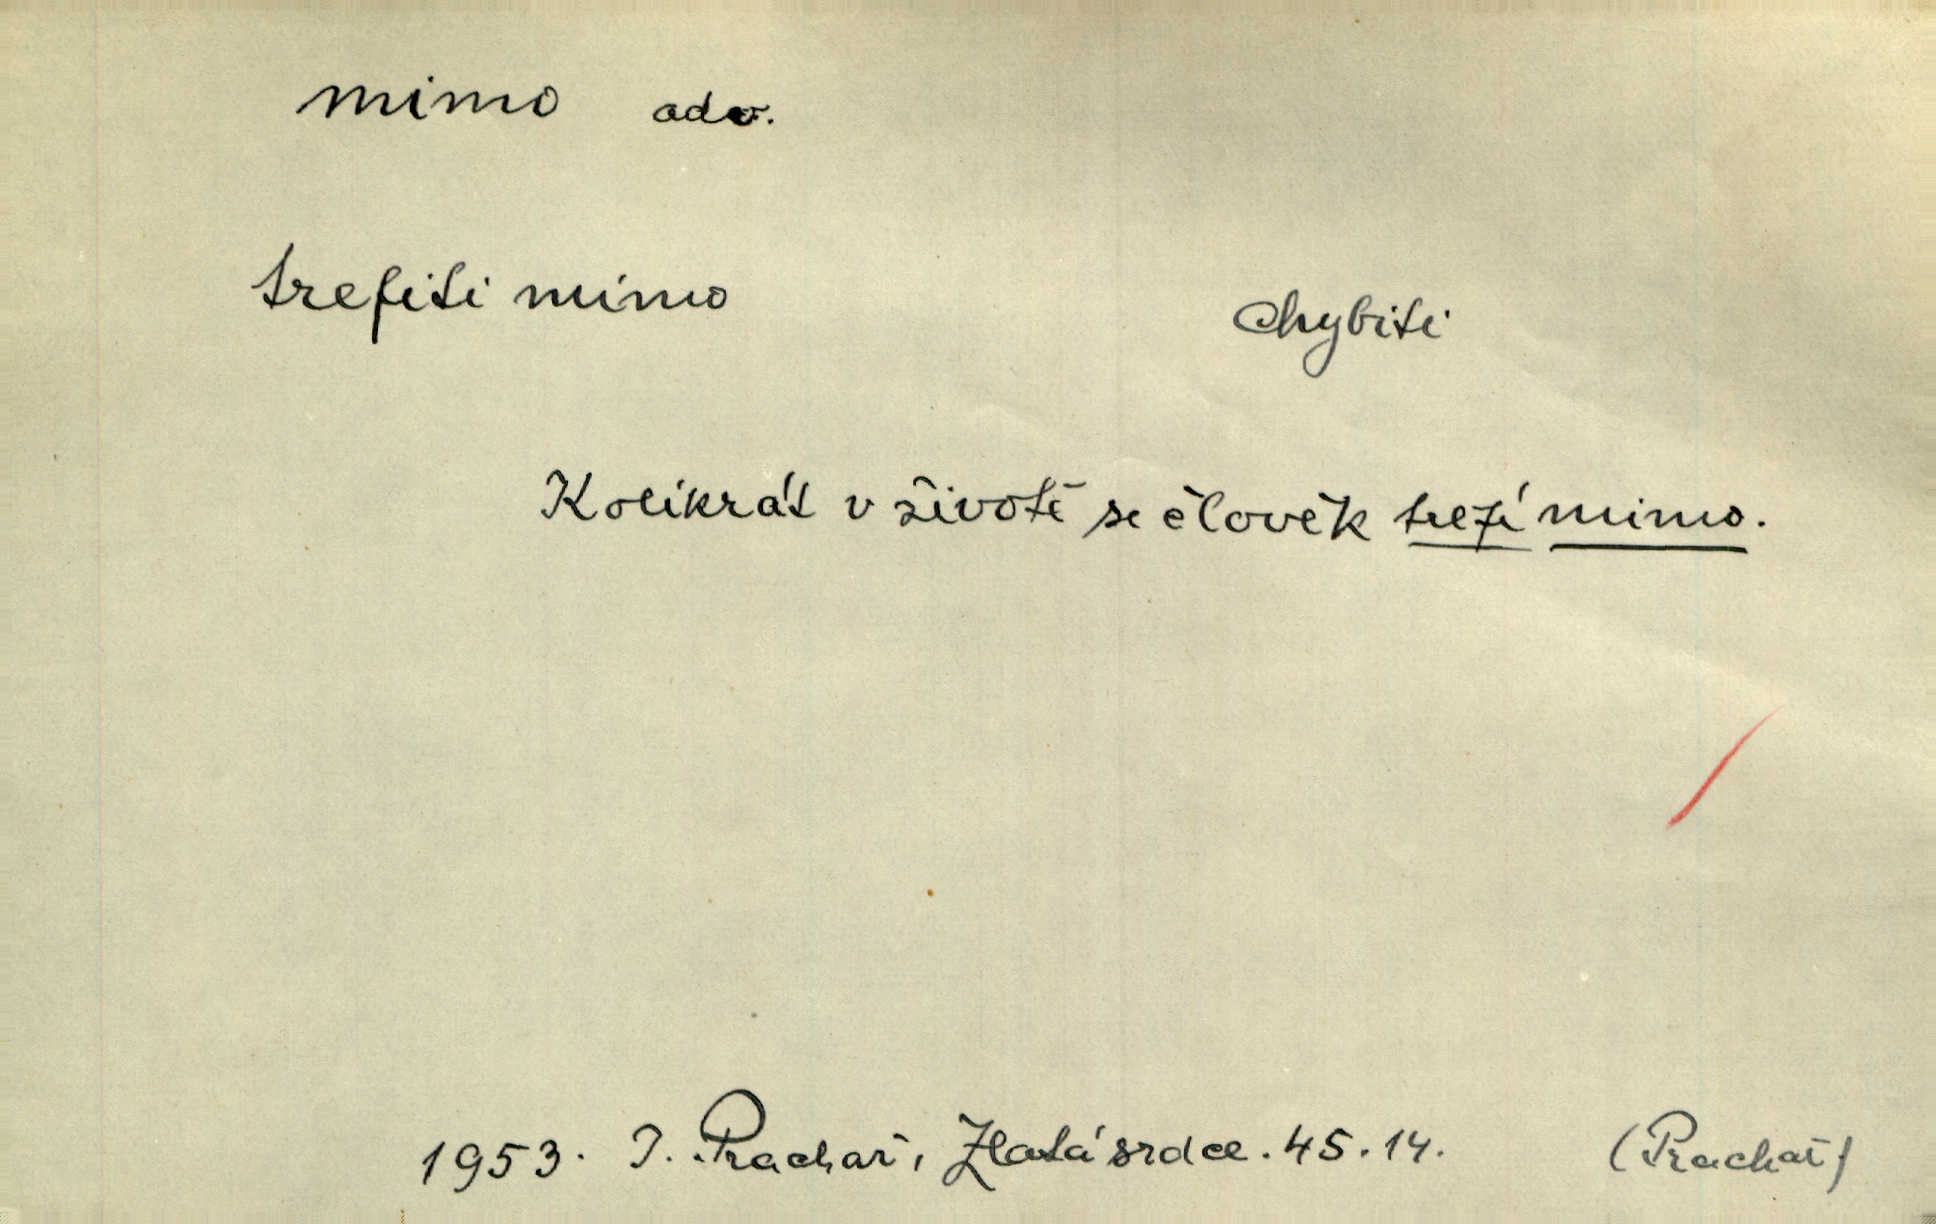 mimo adv.
trefiti mimo chybiti
Kolikrát v životě se člověk trefí mimo.
1953. I. Prachař, Zlatá srdce. 45. 14. (Prachař)